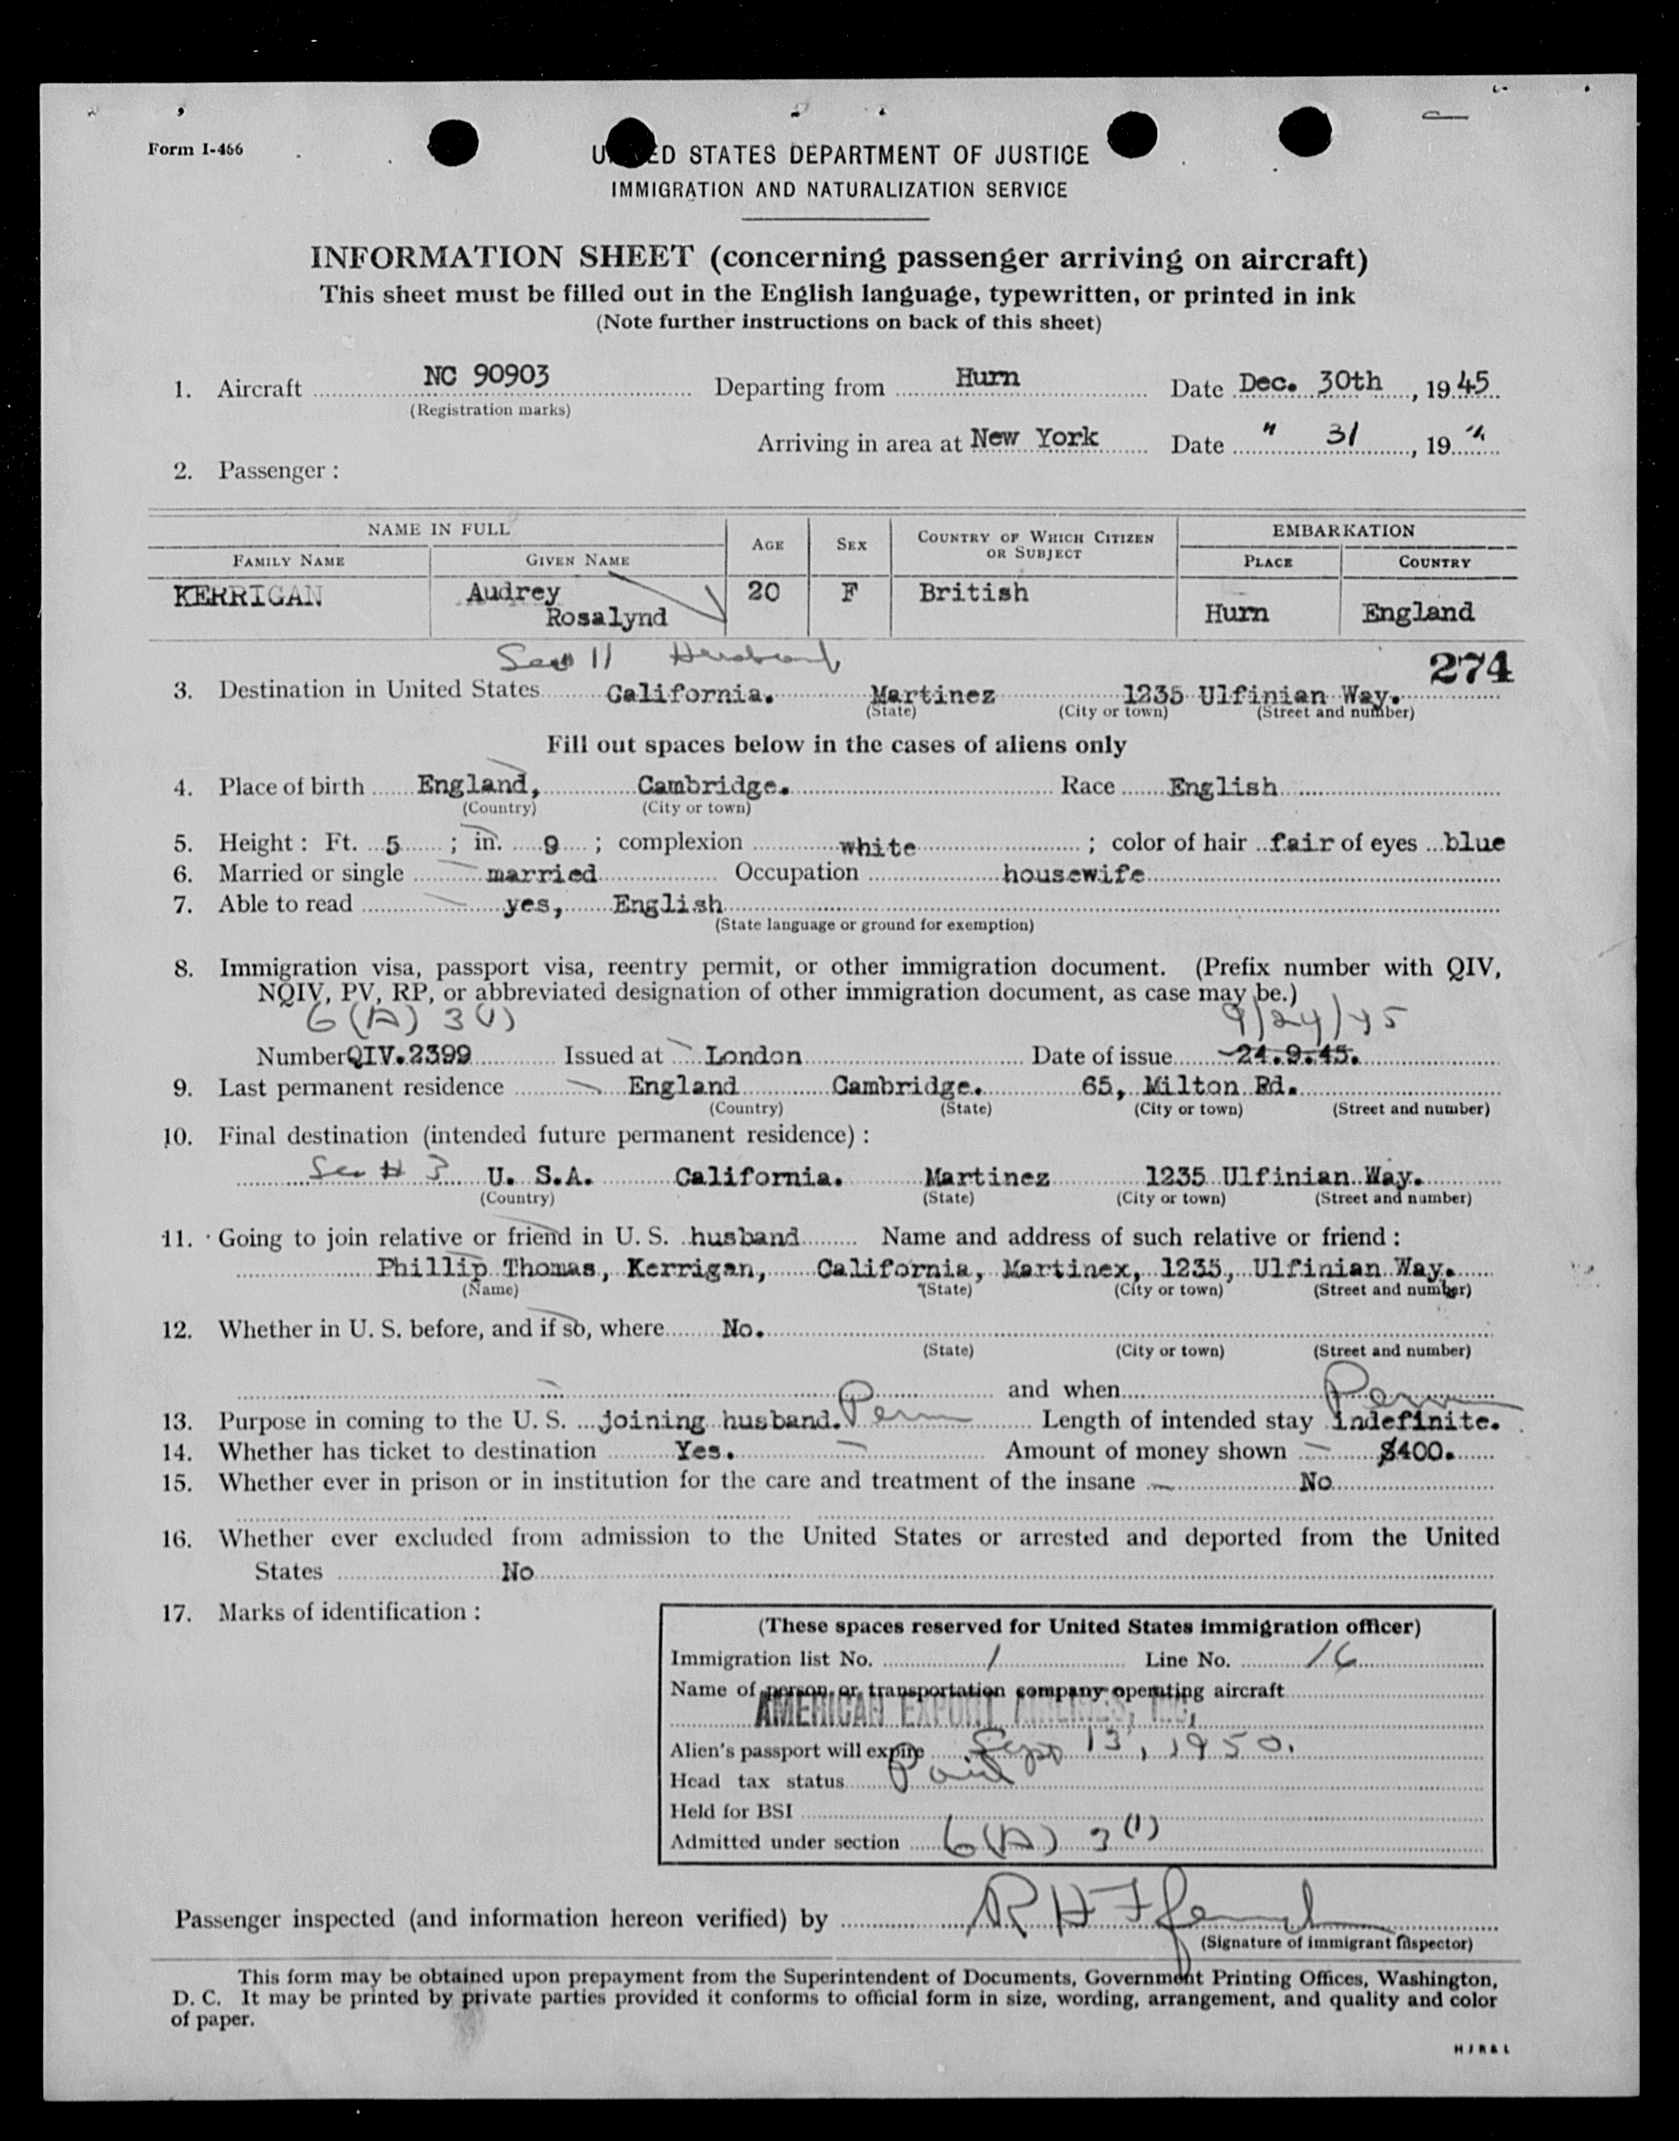 Form I-466
U ED STATES DEPARTMENT OF JUSTICE
IMMIGRATION AND NATURALIZATION SERVICE
INFORMATION SHEET (concerning passenger arriving on aircraft)
This sheet must be filled out in the English language, typewritten, or printed in ink
(Note further instructions on back of this sheet)
1. Aircraft NC 90903 Departing from Hurn Date Dec. 30th, 1945
(Registration marks)
Arriving in area at New York Date " 31, 19 "
2. Passenger:
NAME IN FULL AGE SEX COUNTRY OF WHICH CITIZEN OR SUBJECT EMBARKATION
FAMILY NAME GIVEN NAME PLACE COUNTRY
KERRIGAN Audrey Rosalynd 20 F British Hurn England
See 11 Husband 274
3. Destination in United States California. Martinez 1235 Ulfinian Way.
(State) (City or town) (Street and number)
Fill out spaces below in the cases of aliens only
4. Place of birth England, Cambridge. Race English
(Country) (City or town)
5. Height: Ft. 5; in. 9; complexion white; color of hair fair of eyes blue
6. Married or single married Occupation housewife
7. Able to read yes, English
(State language or ground for exemption)
8. Immigration visa, passport visa, reentry permit, or other immigration document. (Prefix number with QIV,
NQIV, PV, RP, or abbreviated designation of other immigration document, as case may be.)
6(A) 3(1) 9/24/45
Number QIV.2399 Issued at London Date of issue 24.9.45.
9. Last permanent residence England Cambridge. 65, Milton Rd.
(Country) (State) (City or town) (Street and number)
10. Final destination (intended future permanent residence):
See # 3 U. S.A. California. Martinez 1235 Ulfinian Way.
(Country) (State) (City or town) (Street and number)
11. Going to join relative or friend in U. S. husband Name and address of such relative or friend:
Phillip Thomas, Kerrigan, California, Martinex, 1235, Ulfinian Way.
(Name) (State) (City or town) (Street and number)
12. Whether in U. S. before, and if so, where No.
(State) (City or town) (Street and number)
and when Perm
13. Purpose in coming to the U. S. joining husband. Perm Length of intended stay indefinite.
14. Whether has ticket to destination Yes. Amount of money shown $400.
15. Whether ever in prison or in institution for the care and treatment of the insane No
16. Whether ever excluded from admission to the United States or arrested and deported from the United
States No
17. Marks of identification:
(These spaces reserved for United States immigration officer)
Immigration list No. 1 Line No. 16
Name of person or transportation company operating aircraft
AMERICAN EXPORT AIRLINES, INC.
Alien's passport will expire Sept 13, 1950.
Head tax status Paid
Held for BSI
Admitted under section 6(A) 3(1)
Passenger inspected (and information hereon verified) by R H
(Signature of immigrant inspector)
This form may be obtained upon prepayment from the Superintendent of Documents, Government Printing Offices, Washington,
D. C. It may be printed by private parties provided it conforms to official form in size, wording, arrangement, and quality and color
of paper.
HJR&L